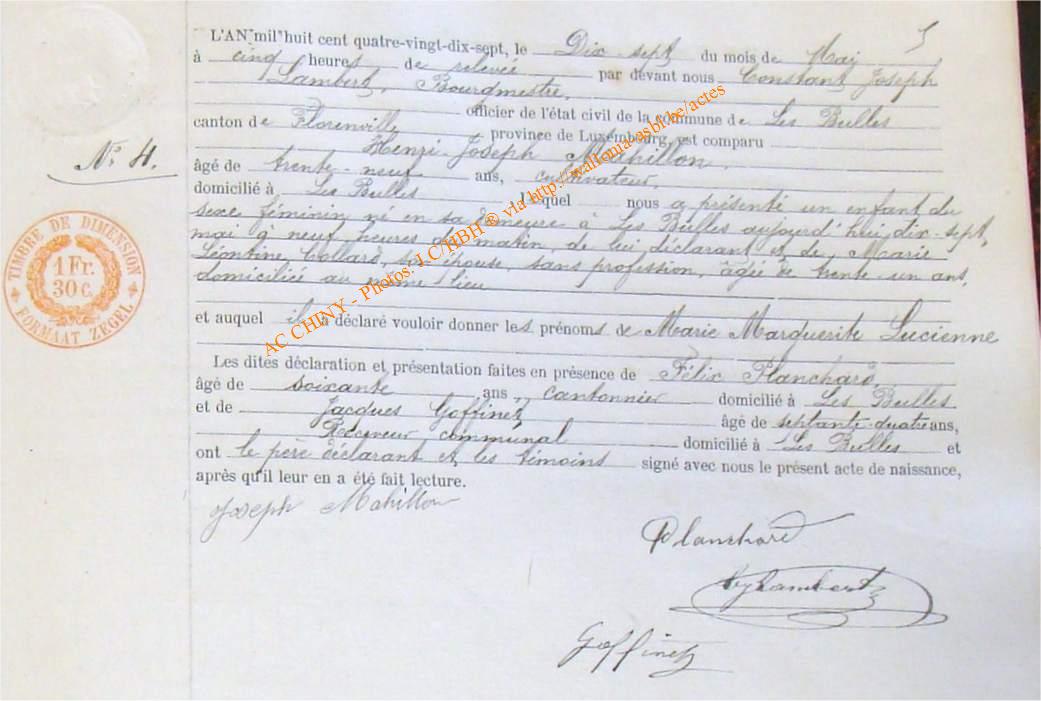 5
L'AN mil huit cent quatre-vingt-dix-sept, le Dix sept du mois de Mai
à cinq heures de relevée par devant nous Constant Joseph
Lambert, Bourgmestre,
officier de l'état civil de la commune de Les Bulles
canton de Florenville province de Luxembourg, est comparu
Henri Joseph Mahillon,
N° 4.
âgé de trente-neuf ans, cultivateur,
domicilié à Les Bulles lequel nous a présenté un enfant du
sexe féminin né en sa demeure à Les Bulles aujourd'hui dix-sept
mai à neuf heures du matin de lui déclarant et de Marie
Léontine Collard, son épouse sans profession, âgée de trente un ans,
domiciliée au même lieu
et auquel il a déclaré vouloir donner les prénoms de Marie Marguerite Lucienne
Les dites déclaration et présentation faites en présence de Félix Planchard,
âgé de soixante ans, cantonnier domicilié à Les Bulles
et de Jacques Goffinet, âgé de septante-quatre ans,
Receveur communal domicilié à Les Bulles et
ont le père déclarant et les témoins signé avec nous le présent acte de naissance,
après qu'il leur en a été fait lecture.
Joseph Mahillon
Planchard
Lambert
Goffinet
TIMBRE DE DIMENSION
1 Fr.
30 c.
FORMAAT ZEGEL
AC CHINY - Photos: J.C/HBH ® via http://wallonia-asbl.be/actes